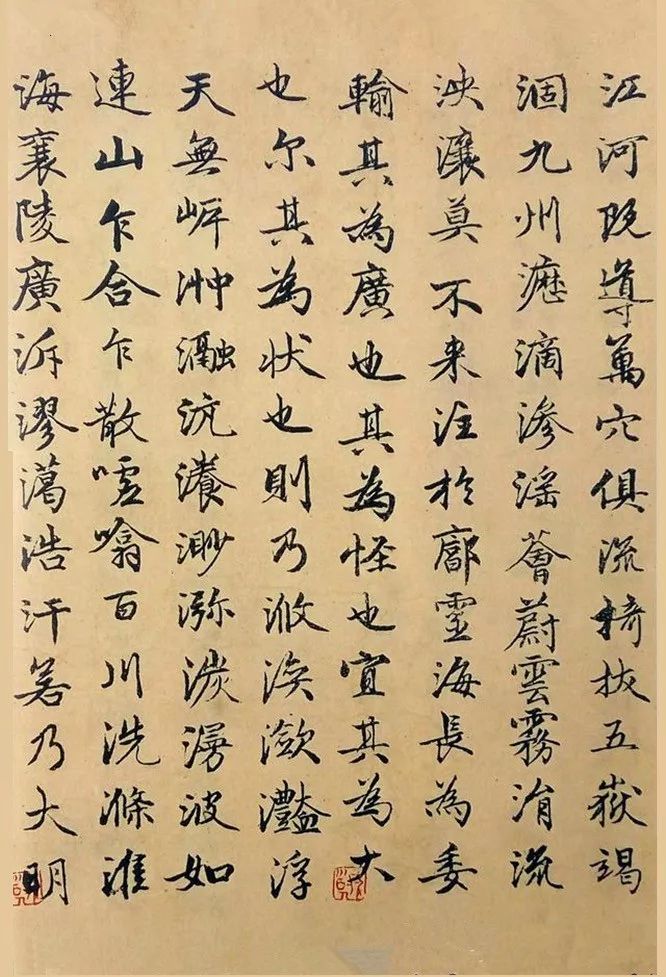 江河既導萬穴俱流掎拔五嶽竭
涸九州瀝滴滲淫薈蔚雲霧涓流
泱瀼莫不來注於廓靈海長為委
輸其為廣也其為怪也宜其為大
也尔其為状也則乃浟湙瀲灩浮
天無岸沖瀜沆瀁渺瀰湠漫波如
連山乍合乍散噓噏百川洗滌淮
海襄陵廣泝漻㵧浩汗若乃大明